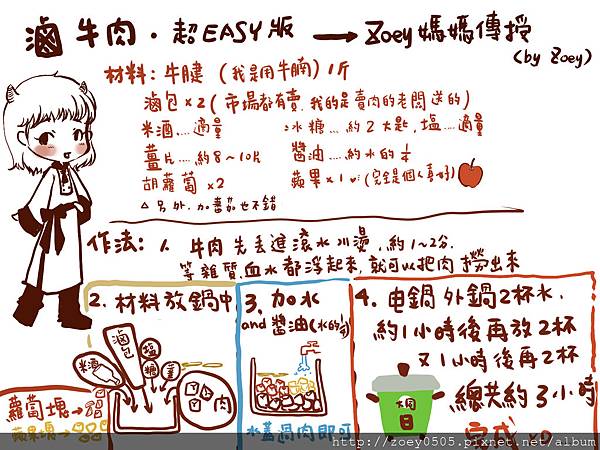 滷牛肉・超EASY版 → Zoey媽媽傳授
(by Zoey)
材料：牛腱 (我是用牛腩) 1斤
滷包×2 (市場都有賣，我的是賣肉的老闆送的)
米酒....適量 冰糖...約2大匙，塩....適量
薑片....約8~10片 醬油....約水的1/4
胡蘿蔔×2 蘋果×1 (完全是個人喜好)
△另外，加番茄也不錯
作法：1. 牛肉先丟進滾水川燙，約1~2分.
等雜質.血水都浮起來，就可以把肉撈出來
2. 材料放鍋中
滷包
米酒
塩
糖
薑
肉
蘿蔔塊→
蘋果塊→
3. 加水
and 醬油(水的1/4)
水蓋過肉即可
4. 电鍋外鍋2杯水，
約1小時後再放2杯
又1小時後再2杯
總共約3小時
大同
完成
http://zoey0505.pixnet.net/album